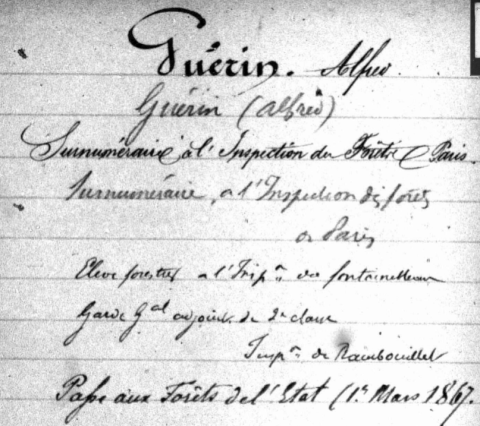 Guérin. Alfred.
Guérin (Alfred)
Surnuméraire à l'Inspection des Forêts Paris.
Surnuméraire, a l'Inspection des forêts
Paris
Elève forestier a l'Insp.on de fontainebleau
Garde Gal adjoint. de 2e classe
Insp.on de Rambouillet
Passe aux Forêts de l'Etat (1er Mars 1867.